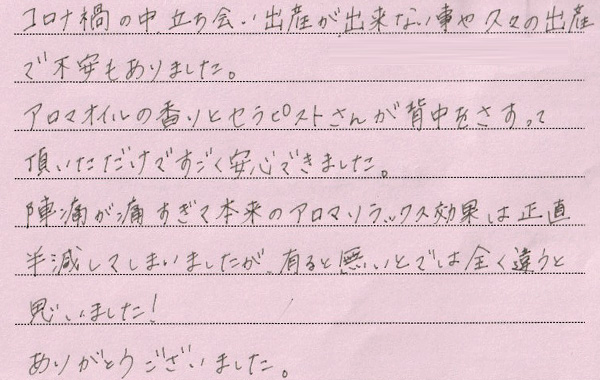 コロナ禍の中、立ち会い出産が出来ない事や久々の出産
で不安もありました。
アロマオイルの香りとセラピストさんが背中をさすって
頂いただけですごく安心できました。
陣痛が痛すぎて本来のアロマリラックス効果は正直
半減してしまいましたが、有ると無いとでは全く違うと
思いました!
ありがとうございました。